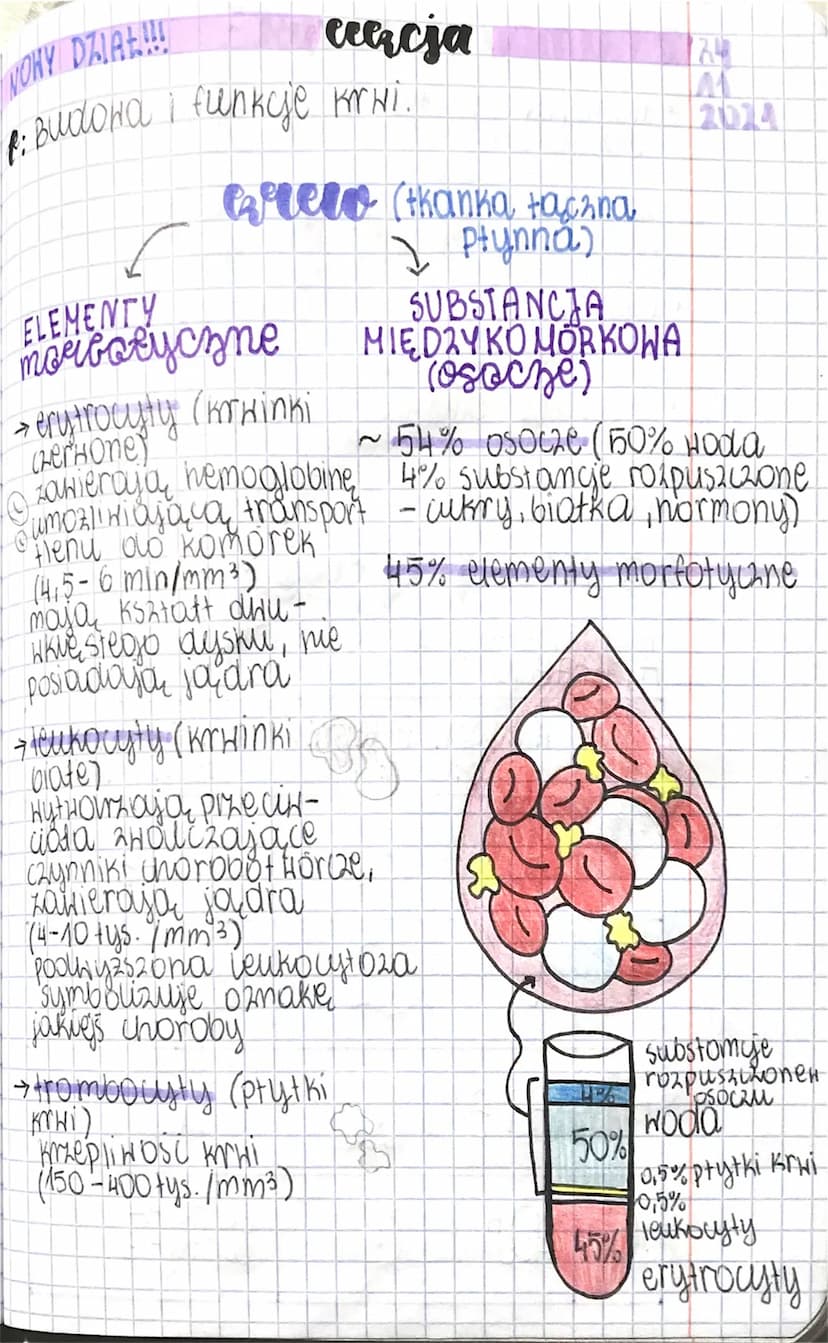 NOWY DZIAŁ!!!
lekcja
24
11
2021
t: Budowa i funkcje krwi.
krew (tkanka łączna
płynna)
ELEMENTY
morfotyczne
→ erytrocyty (krwinki
czerwone)
zawierają hemoglobinę
umożliwiającą transport
tlenu do komórek
(4,5-6 mln/mm³)
mają kształt dwu-
wklęsłego dysku, nie
posiadają jądra
→ leukocyty (krwinki
białe)
wytwarzają przeciw-
ciała zwalczające
czynniki chorobotwórcze,
zawierają jądra
(4-10 tys./mm³)
podwyższona leukocytoza
symbolizuje oznakę
jakiejś choroby
→ trombocyty (płytki
krwi)
krzepliwość krwi
(150-400 tys./mm³)
SUBSTANCJA
MIĘDZYKOMÓRKOWA
(osocze)
~ 54% osocze (50% woda
4% substancje rozpuszczone
- cukry, białka, hormony)
45% elementy morfotyczne
substancje
rozpuszczone w
osoczu
4%
woda
50%
0,5% płytki krwi
0,5%
leukocyty
45%
erytrocyty